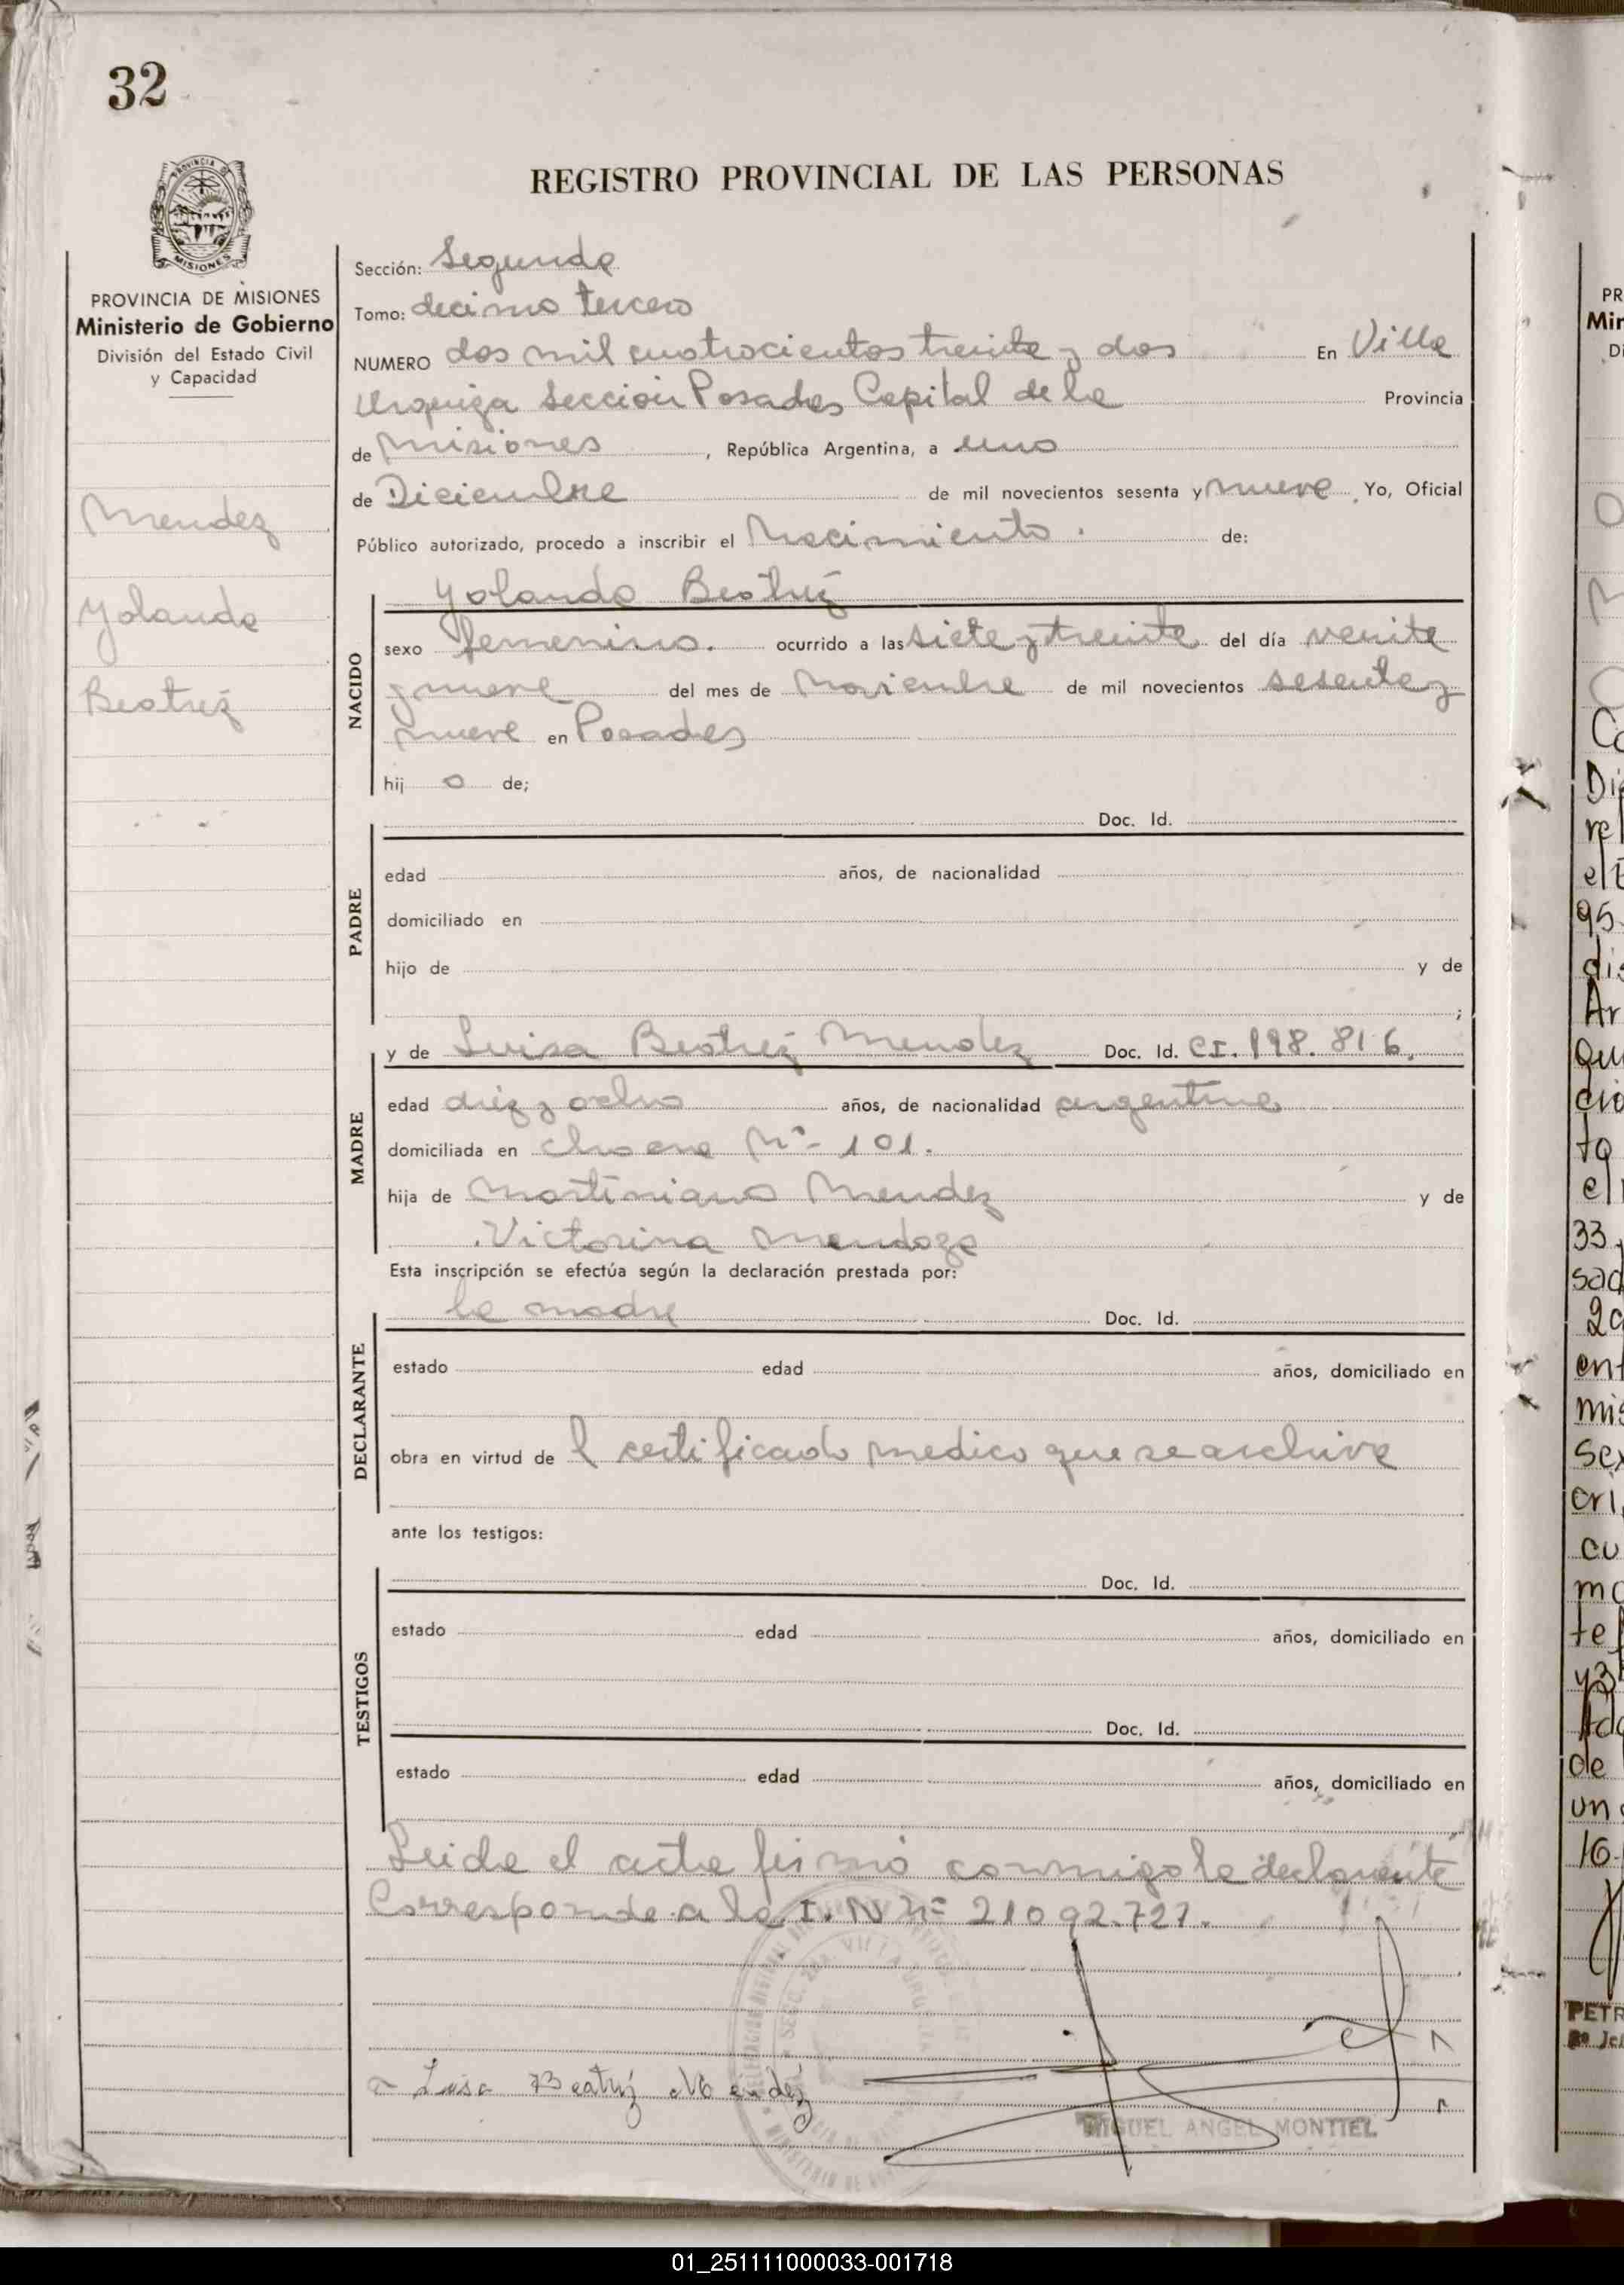 32
REGISTRO PROVINCIAL DE LAS PERSONAS
PROVINCIA DE MISIONES
Ministerio de Gobierno
División del Estado Civil
y Capacidad
Mendez
Yolanda
Beatriz
Sección: Segunda
Tomo: decimo tercero
NUMERO dos mil cuatrocientos treinta y dos En Villa
Urquiza Sección Posadas Capital de la Provincia
de Misiones, República Argentina, a uno
de Diciembre de mil novecientos sesenta y nueve, Yo, Oficial
Público autorizado, procedo a inscribir el Nacimiento. de:
NACIDO
Yolanda Beatriz
sexo femenino. ocurrido a las siete y treinta del día veinte
y nueve del mes de Noviembre de mil novecientos sesenta y
nueve en Posadas
hij o de;
PADRE
Doc. Id.
edad años, de nacionalidad
domiciliado en
hijo de y de
;
MADRE
y de Luisa Beatriz Mendez Doc. Id. CI. 198.816.
edad diez y ocho años, de nacionalidad argentina
domiciliada en chacra Nº- 101.
hija de Martiniano Mendez y de
Victorina Mendoza
Esta inscripción se efectúa según la declaración prestada por:
DECLARANTE
la madre Doc. Id.
estado edad años, domiciliado en
obra en virtud de l certificado medico que se archiva
ante los testigos:
TESTIGOS
Doc. Id.
estado edad años, domiciliado en
Doc. Id.
estado edad años, domiciliado en
Leida el acta firmó conmigo la declarante
Corresponde a la I. N Nº= 21092.727.
Luisa Beatriz Mendez
MIGUEL ANGEL MONTIEL
01_251111000033-001718